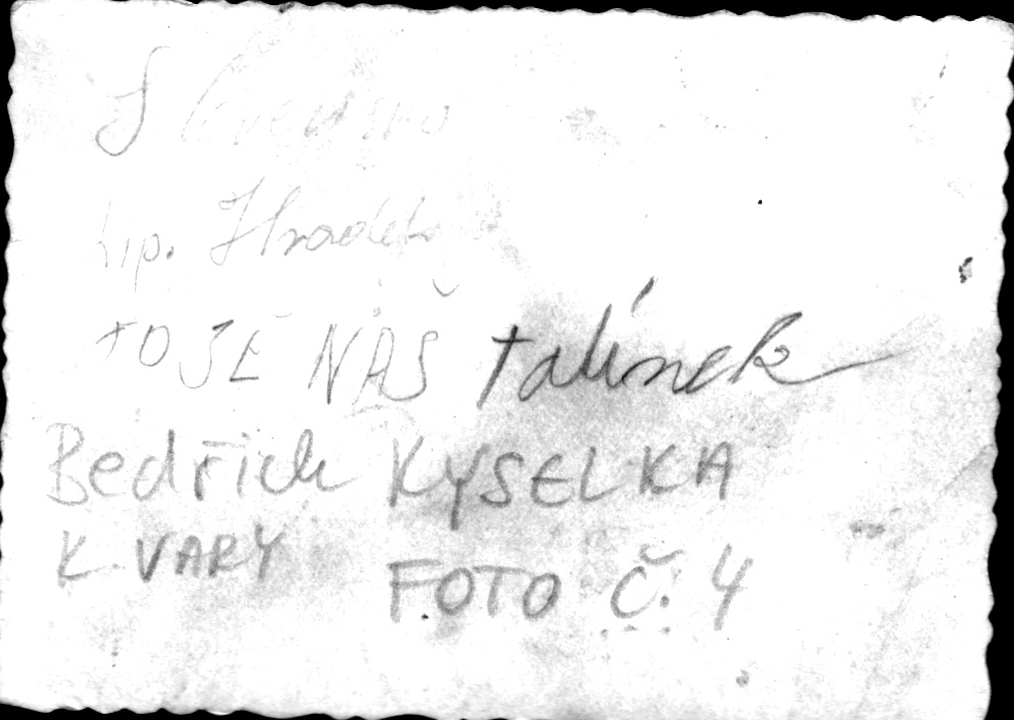 Lip. Hrádek
TO JE NÁŠ tatínek
Bedřich KYSELKA
K VARY FOTO Č. 4